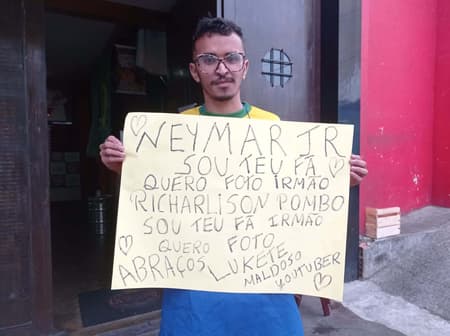 NEYMAR JR
SOU TEU FÃ
QUERO FOTO IRMÃO
RICHARLISON POMBO
SOU TEU FÃ IRMÃO
QUERO FOTO
ABRAÇOS LUKETE
MALDOSO
YOUTUBER